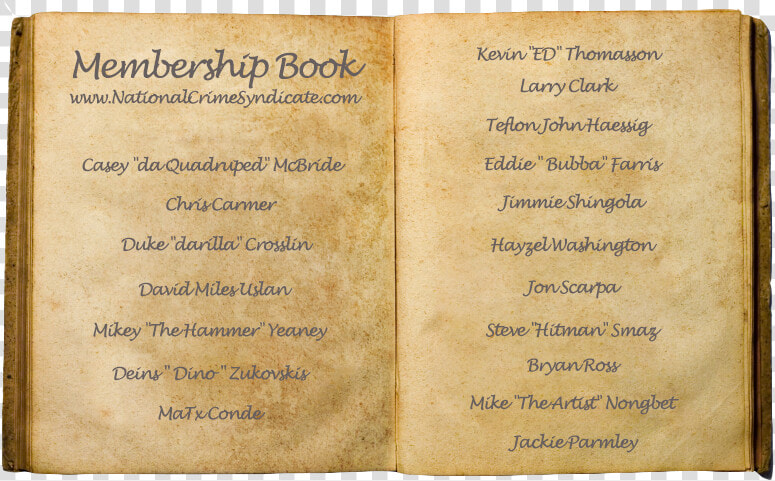 Membership Book
www.NationalCrimeSyndicate.com
Casey "da Quadruped" McBride
Chris Carmer
Duke "darilla" Crosslin
David Miles Uslan
Mikey "The Hammer" Yeaney
Deins " Dino " Zukovskis
MaTx Conde
Kevin "ED" Thomasson
Larry Clark
Teflon John Haessig
Eddie " Bubba" Farris
Jimmie Shingola
Hayzel Washington
Jon Scarpa
Steve "Hitman" Smaz
Bryan Ross
Mike "The Artist" Nongbet
Jackie Parmley